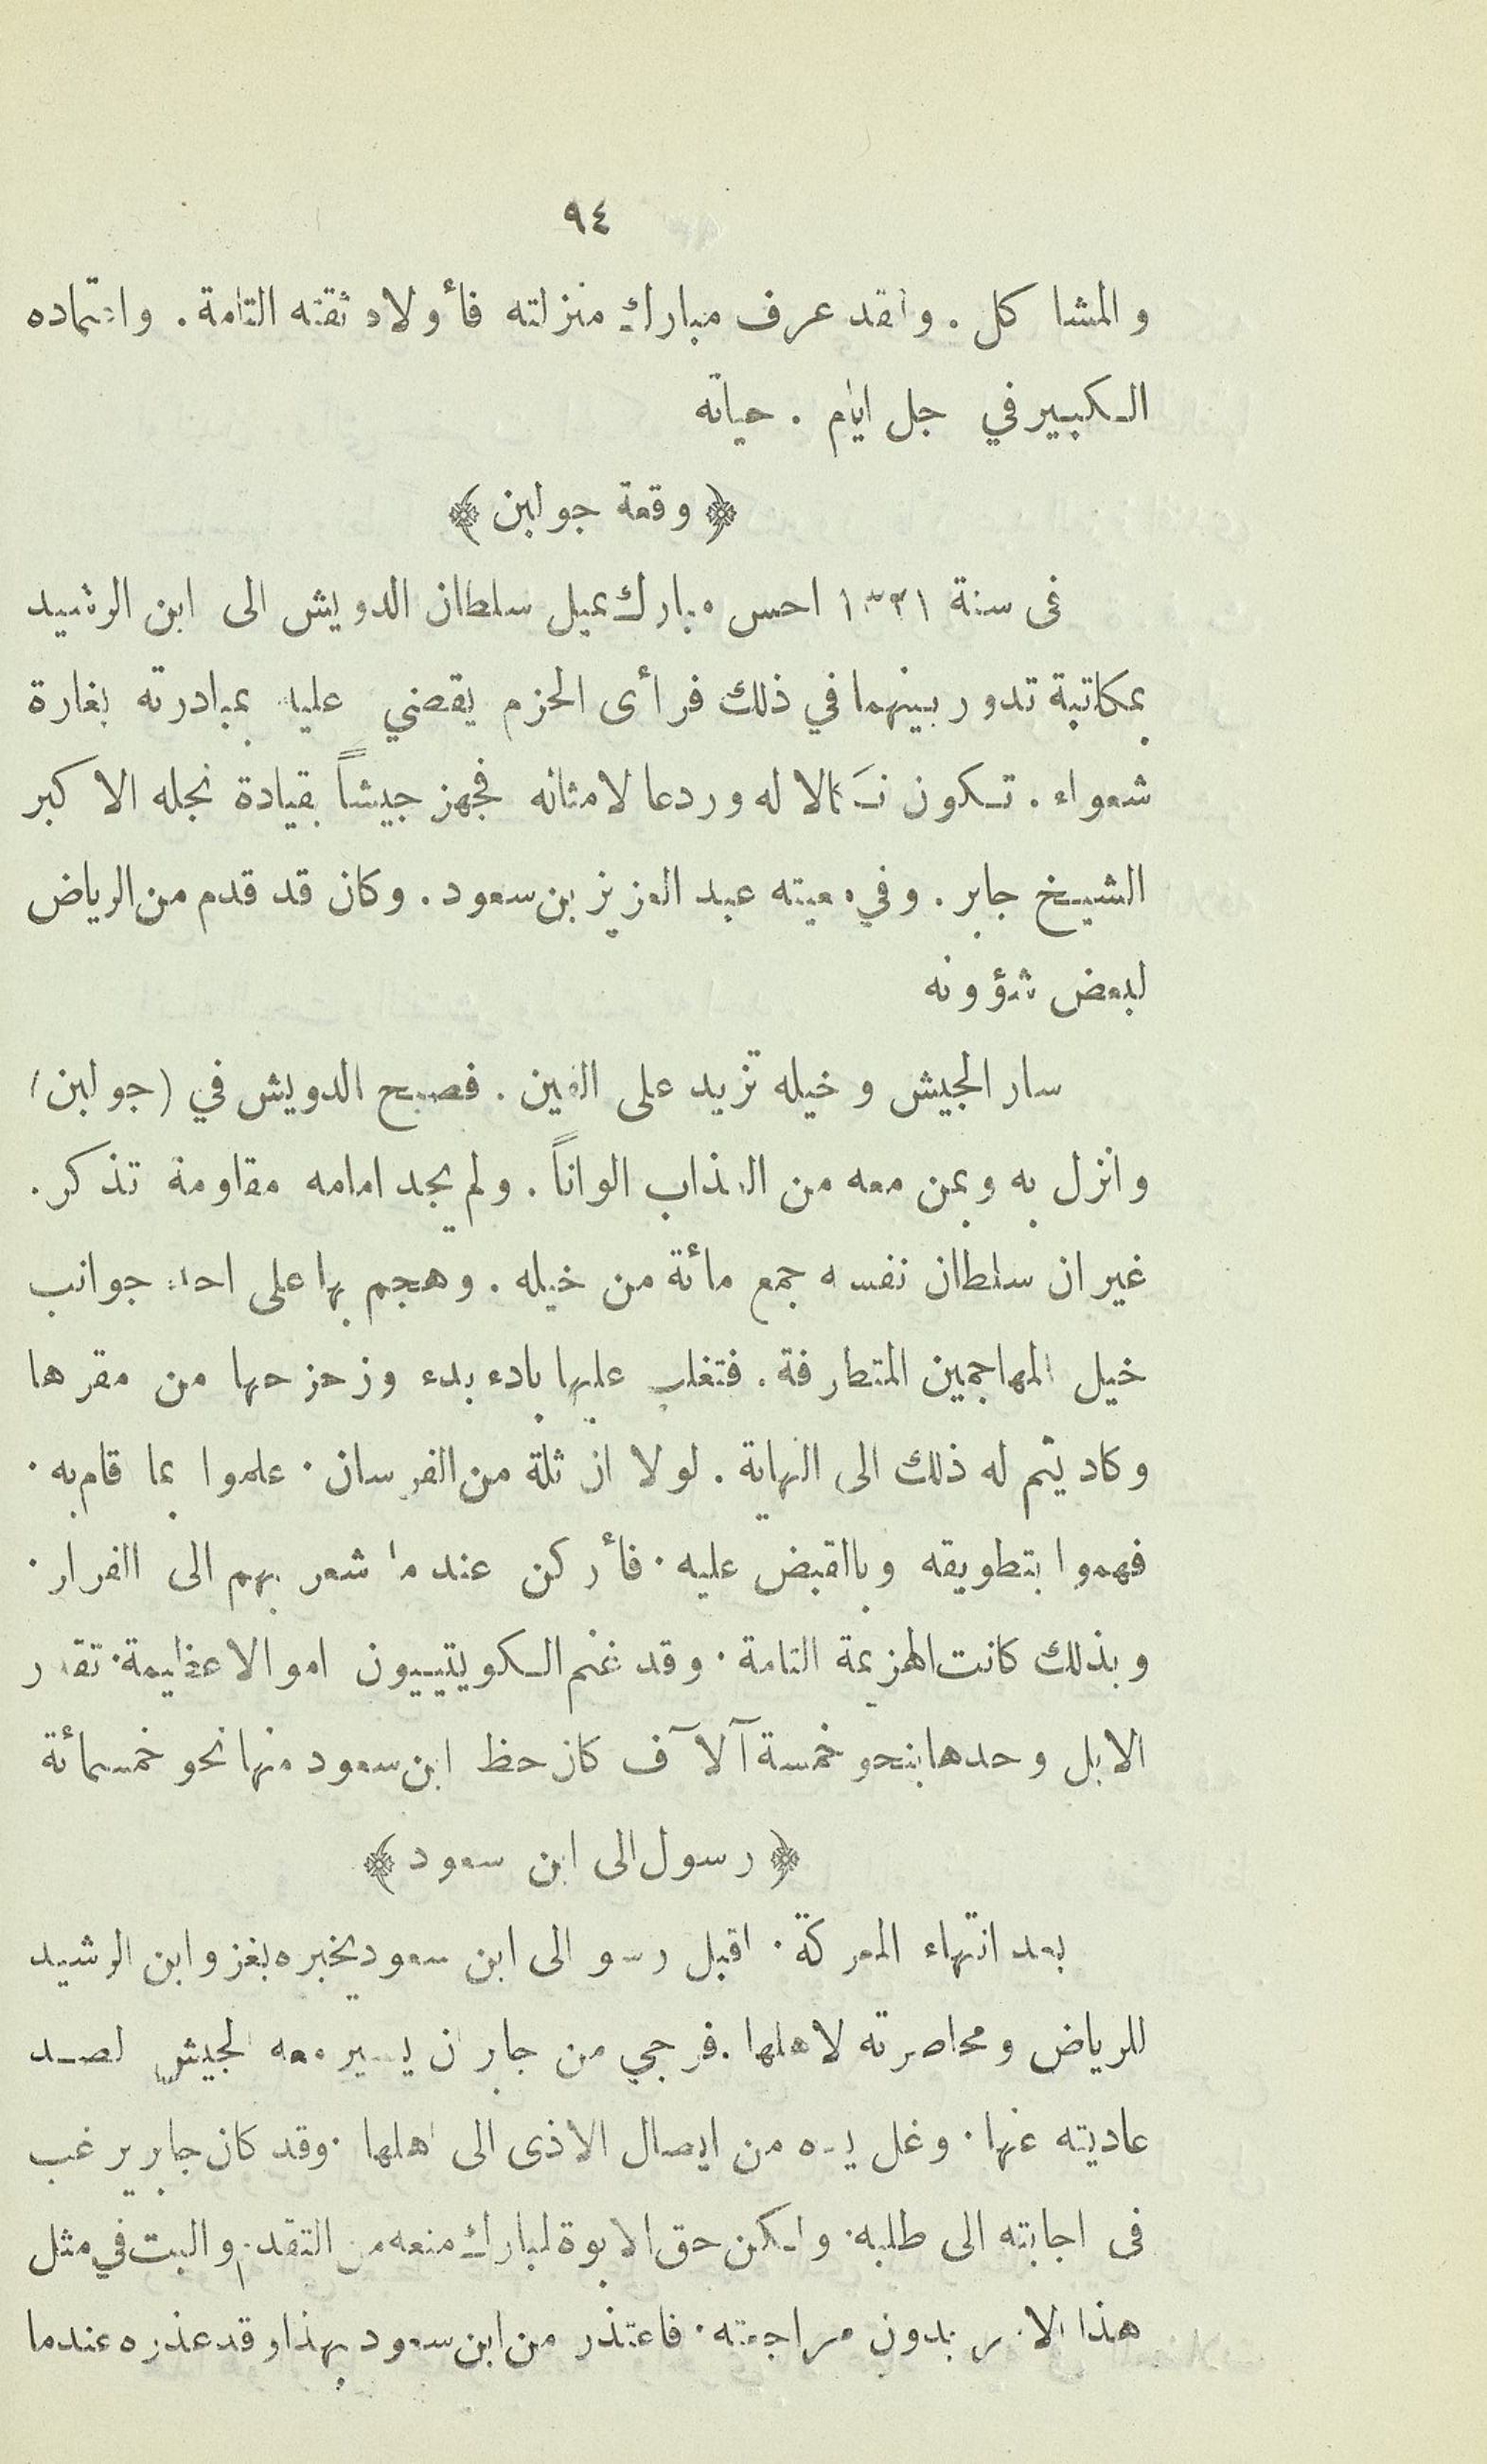 ٩٤
والمشاكل . ولقد عرف مبارك منزلته فأولاه ثقته التامة . واعتماده
الكبير في جل ايام . حياته
﴿ وقعة جولبن ﴾
فى سنة ١٣٢١ احس مبارك بميل سلطان الدويش الى ابن الرشيد
بمكاتبة تدور بينهما في ذلك فرأى الحزم يقضي عليه بمبادرته بغارة
شعواء . تكون نَكالا له وردعا لامثاله فجهز جيشاً بقيادة نجله الاكبر
الشيخ جابر . وفي معيته عبد العزيز بن سعود . وكان قد قدم من الرياض
لبعض شؤونه
سار الجيش وخيله تزيد على الفين . فصبح الدويش في (جولبن)
وانزل به وبمن معه من العذاب الواناً . ولم يجد امامه مقاومة تذكر .
غير ان سلطان نفسه جمع مائة من خيله . وهجم بها على احد جوانب
خيل المهاجمين المتطارفة . فتغلب عليها بادء بدء وزحزحها من مقرها
وكاد يتم له ذلك الى النهاية . لولا ان ثلة من الفرسان . علموا بما قام به .
فهموا بتطويقه وبالقبض عليه . فأركن عندما شعر بهم الى الفرار .
وبذلك كانت الهزيمة التامة . وقد غنم الكويتييون اموالا عظيمة . تقدر
الابل وحدها بنحو خمسة آلآف كان حظ ابن سعود منها نحو خمسمائة
﴿ رسول الى ابن سعود ﴾
بعد انتهاء المعركة . اقبل رسو الى ابن سعود يخبره بغزو ابن الرشيد
للرياض ومحاصرته لاهلها . فرجي من جابر ان يسير معه الجيش لصد
عاديته عنها . وغل يده من ايصال الاذى الى اهلها . وقد كان جابر يرغب
فى اجابته الى طلبه . ولكن حق الابوة لمبارك منعه من التقدم والبت في مثل
هذا الامر بدون مراجعته . فاعتذر من ابن سعود بهذا وقد عذره عندما